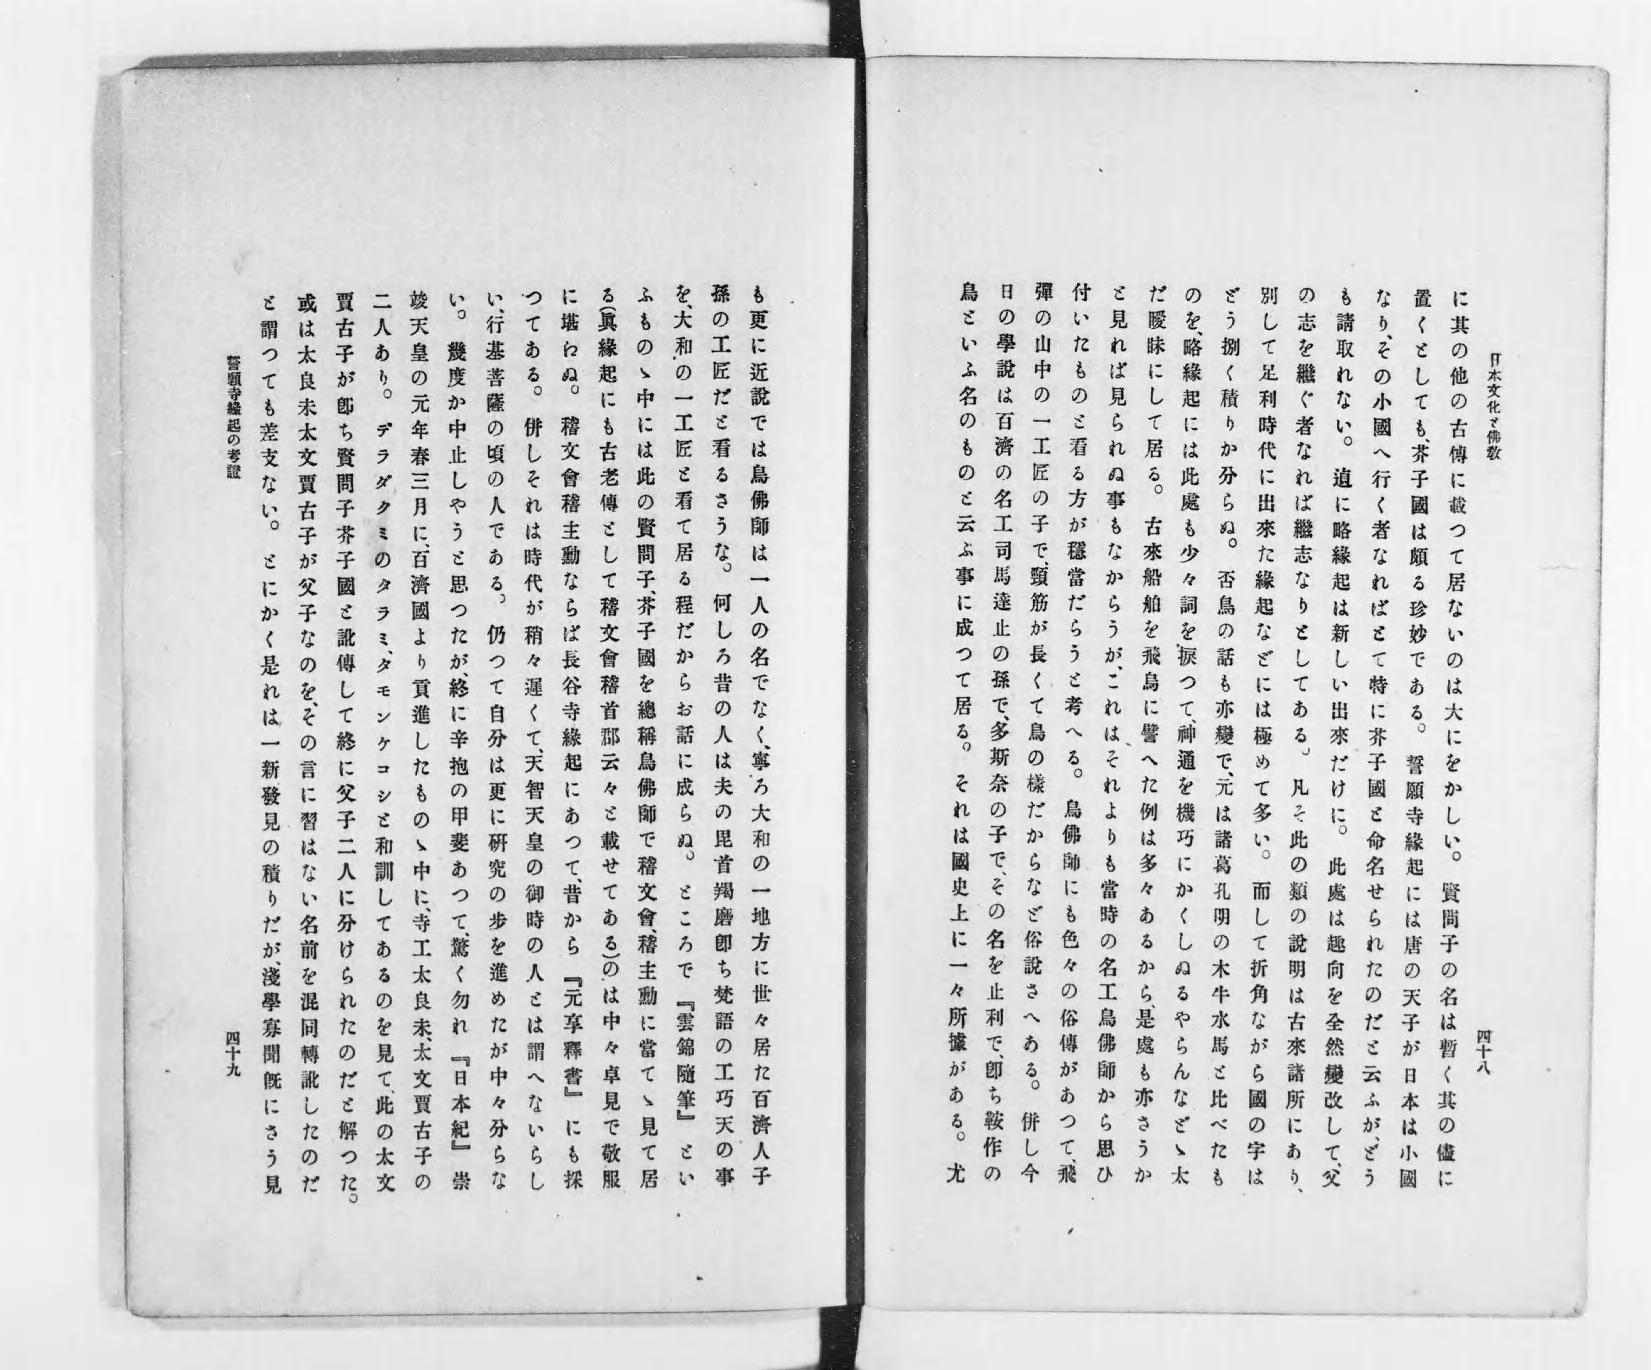 日本文化と佛敎
四十八
に其の他の古傳に載つて居ないのは大にをかしい。賢問子の名は暫く其の儘に
置くとしても、芥子國は頗る珍妙である。誓願寺緣起には唐の天子が日本は小國
なり、その小國へ行く者なればとて特に芥子國と命名せられたのだと云ふが、どう
も請取れない。道に略緣起は新しい出來だけに。此處は趣向を全然變改して、父
の志を繼ぐ者なれば繼志なりとしてある。凡そ此の類の說明は古來諸所にあり、
別して足利時代に出來た緣起などには極めて多い。而して折角ながら國の字は
どう捌く積りか分らぬ。否鳥の話も亦變で、元は諸葛孔明の木牛水馬と比べたも
のを、略緣起には此處も少々詞を捩つて、神通を機巧にかくしぬるやらんなどゝ太
だ曖昧にして居る。古來船舶を飛鳥に譬へた例は多々あるから、是處も亦さうか
と見れば見られぬ事もなからうが、これはそれよりも當時の名工鳥佛師から思ひ
付いたものと看る方が穩當だらうと考へる。鳥佛師にも色々の俗傳があつて、飛
彈の山中の一工匠の子で、頸筋が長くて鳥の樣だからなど俗說さへある。併し今
日の學說は百濟の名工司馬達止の孫で、多斯奈の子で、その名を止利で、卽ち鞍作の
鳥といふ名のものと云ふ事に成つて居る。それは國史上に一々所據がある。尤
も更に近說では鳥佛師は一人の名でなく、寧ろ大和の一地方に世々居た百濟人子
孫の工匠だと看るさうな。何しろ昔の人は夫の毘首羯磨卽ち梵語の工巧天の事
を、大和の一工匠と看て居る程だからお話に成らぬ。ところで『雲錦隨筆』とい
ふものゝ中には此の賢問子、芥子國を總稱鳥佛師で稽文會、稽主動に當てゝ見て居
る(眞緣起にも古老傳として稽文會稽首郡云々と載せてある)のは中々卓見で敬服
に堪わぬ。稽文會稽主動ならば長谷寺緣起にあつて、昔から『元享釋書』にも採
つてある。併しそれは時代が稍々遲くて、天智天皇の御時の人とは謂へないらし
い、行基菩薩の頃の人である。仍つて自分は更に研究の步を進めたが中々分らな
い。幾度か中止しやうと思つたが、終に辛抱の甲斐あつて、驚く勿れ『日本紀』崇
竣天皇の元年春三月に、百濟國より貢進したものゝ中に、寺工太良未、太文賈古子の
二人あり。デラダクミのタラミ、タモンケコシと和訓してあるのを見て、此の太文
賈古子が卽ち賢問子芥子國と訛傳して終に父子二人に分けられたのだと解つた。
或は太良未太文賈古子が父子なのを、その言に習はない名前を混同轉訛したのだ
と謂つても差支ない。とにかく是れは一新發見の積りだが、淺學寡聞旣にさう見
誓願寺緣起の考證
四十九